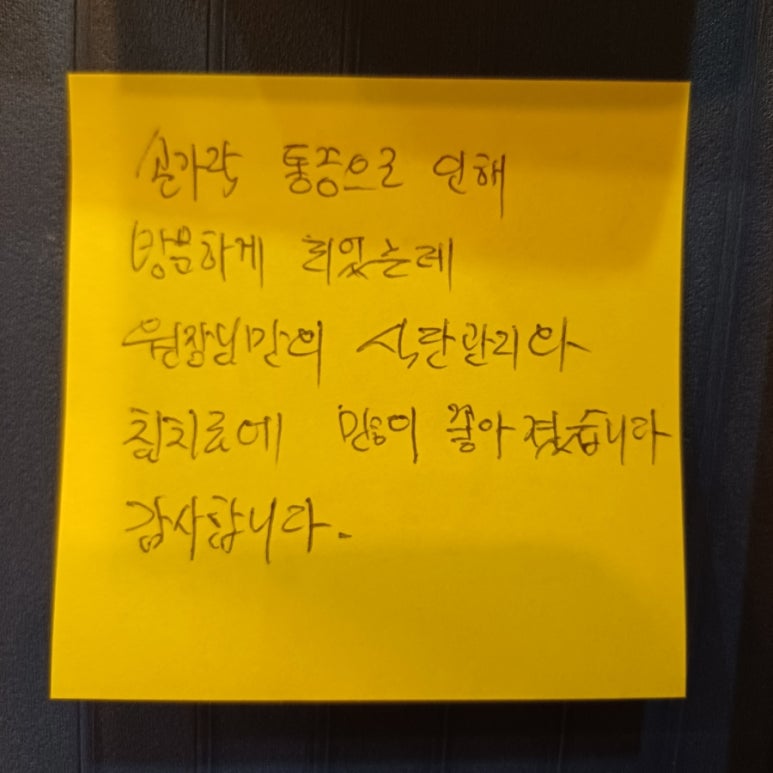 손가락 통증으로 인해
방문하게 되었는데
원장님만의 식단관리와
침치료에 믿음이 좋아졌습니다
감사합니다.